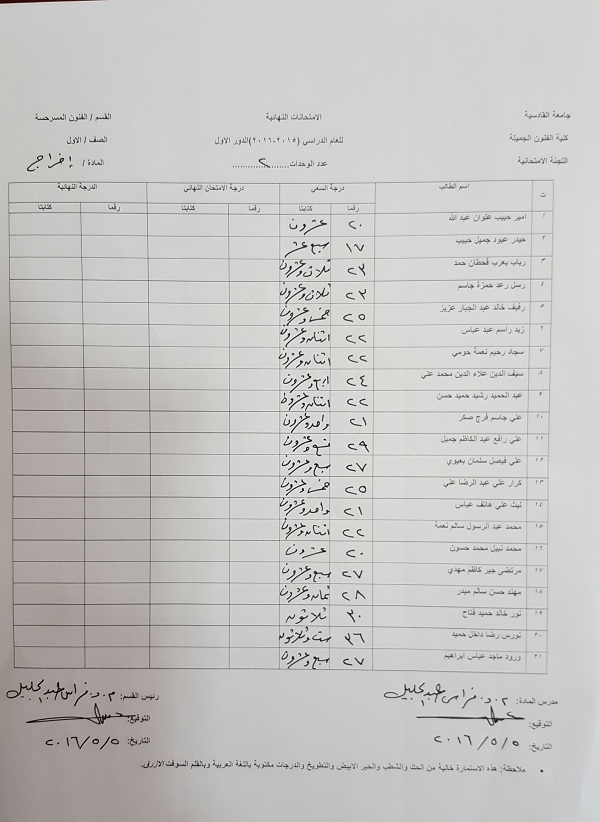 جامعة القادسية الامتحانات النهائية القسم / الفنون المسرحية
كلية الفنون الجميلة للعام الدراسي (٢٠١٥-٢٠١٦)الدور الاول الصف / الاول
اللجنة الامتحانية عدد الوحدات.......٢....... المادة / إخراج
ت اسم الطالب درجة السعي درجة الامتحان النهائي الدرجة النهائية
رقما كتابتا رقما كتابتا رقما كتابتا
١ امير حبيب علوان عبد الله ٢٠ عشرون
٢ حيدر عبود جميل حبيب ١٧ سبع عشر
٣ رباب يعرب قحطان حمد ٢٣ ثلاث وعشرون
٤ رسل رعد حمزة جاسم ٢٣ ثلاث وعشرون
٥ رفيف خالد عبد الجبار عزيز ٢٥ خمس وعشرون
٦ زيد راسم عبد عباس ٢٢ اثنان وعشرون
٧ سجاد رحيم نعمة حومي ٢٢ اثنان وعشرون
٨ سيف الدين علاء الدين محمد علي ٢٤ اربع وعشرون
٩ عبد الحميد رشيد حميد حسن ٢٢ اثنان وعشرون
١٠ علي جاسم فرج صكر ٢١ واحد وعشرون
١١ علي رافع عبد الكاظم جميل ٢٩ تسع وعشرون
١٢ علي فيصل سلمان بعيوي ٢٧ سبع وعشرون
١٣ كرار علي عبد الرضا علي ٢٥ خمس وعشرون
١٤ ليث علي هاتف عباس ٢١ واحد وعشرون
١٥ محمد عبد الرسول سالم نعمة ٢٢ اثنان وعشرون
١٦ محمد نبيل محمد حسون ٢٠ عشرون
١٧ مرتضى جبر كاظم مهدي ٢٧ سبع وعشرون
١٨ مهند حسن سالم ميدر ٢٨ ثمان وعشرون
١٩ نور خالد حميد فتاح ٣٠ ثلاثون
٢٠ نورس رضا داخل حميد ٣٦ ست وثلاثون
٢١ ورود ماجد عباس ابراهيم ٢٧ سبع وعشرون
مدرس المادة: م.د. فراس عبد الجليل رئيس القسم: م.د. فراس عبد الجليل
التوقيع: التوقيع:
التاريخ: ٢٠١٦/٥/٥ التاريخ: ٢٠١٦/٥/٥
• ملاحظة: هذه الاستمارة خالية من الحك والشطب والحبر الابيض والتطويخ والدرجات مكتوبة باللغة العربية وبالقلم السوفت الازرق.